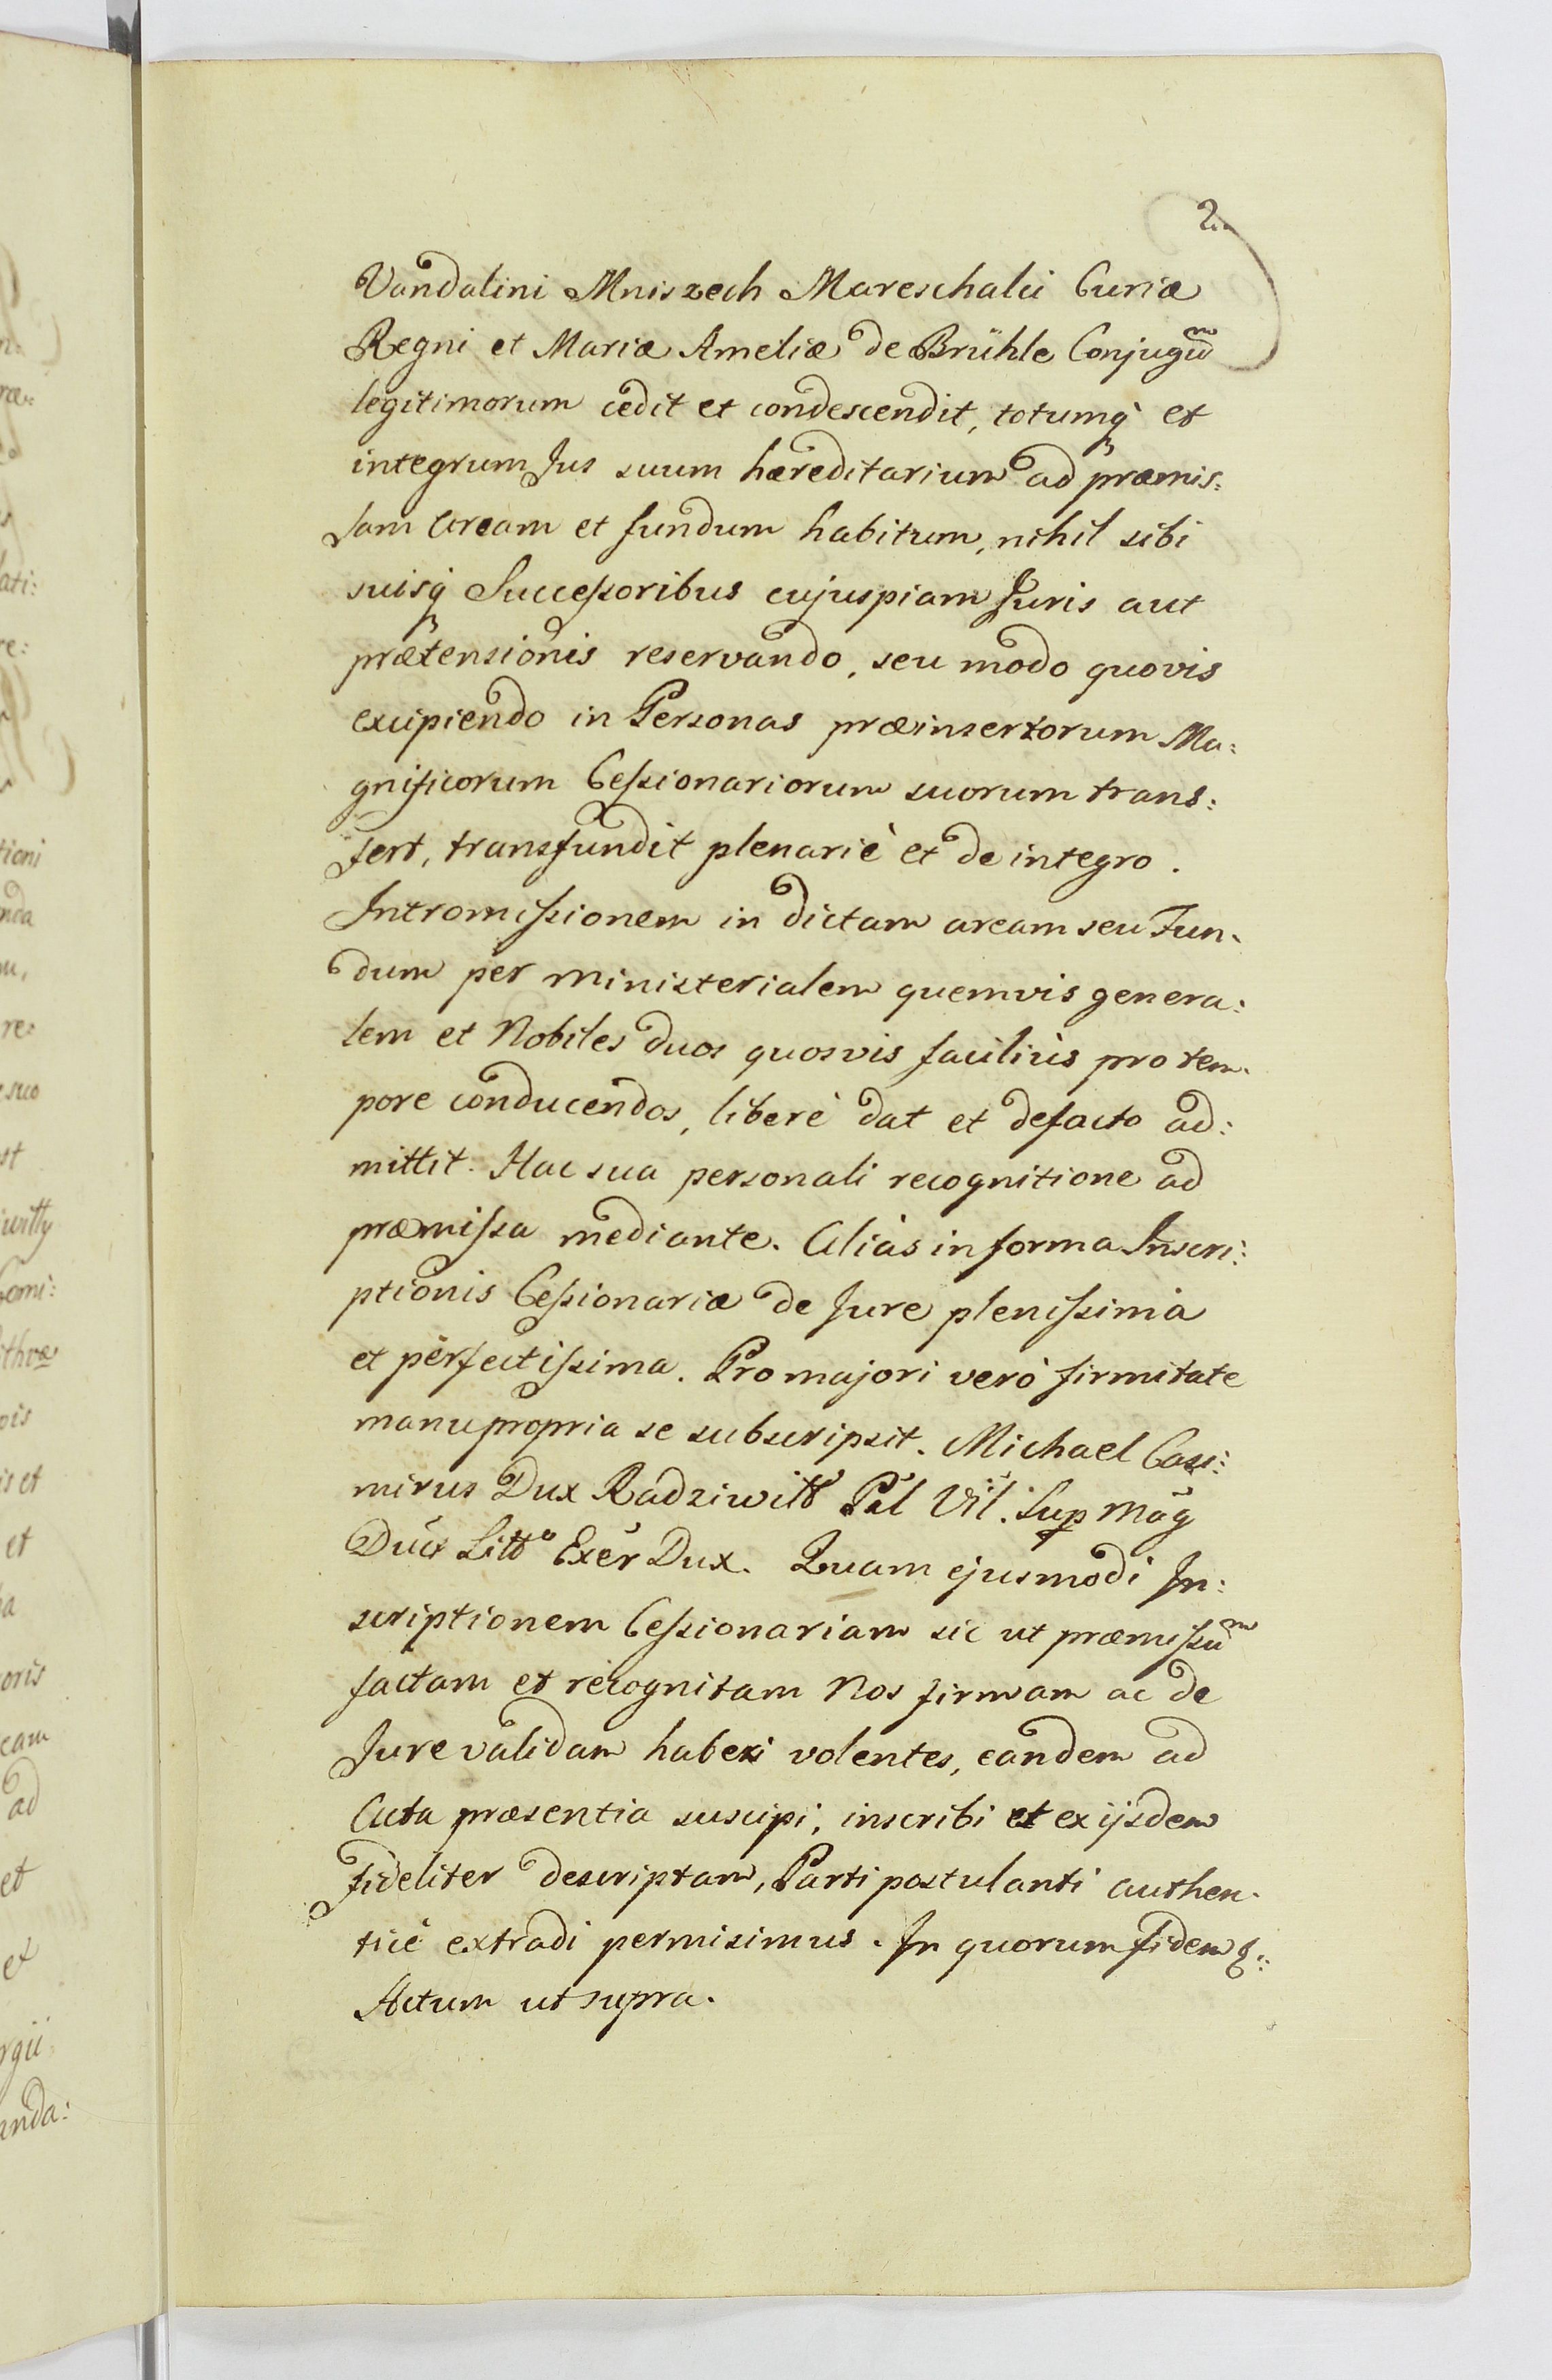 2.
Vandalini Mniszech Mareschalci Curiæ
Regni et Mariæ Ameliæ de Brühle Conjugũm
legitimorum cedit et condescendit, totumq́ et
integrum Jus suum hæreditarium ad præmis:
sam Aream et fundum habitum, nihil sibi
suisq́ Succeſsoribus cujuspiam Juris aut
prætensionis reservando, seu modo quovis
excipiendo in Personas præinsertorum Ma:
gnificorum Ceſsionariorum suorum trans:
fert, transfundit plenariè et de integro.
Intromiſsionem in dictam aream seu Fun-
dum per Ministerialem quemvis genera:
lem et Nobiles duos quosvis faciliùs pro tem-
pore conducendos, liberè dat et defacto ad:
mittit. Hac sua personali recognitione ad
præmiſsa mediante. Aliàs in forma Inscri:
ptionis Ceſsionariæ de Jure pleniſsima
et perfectiſsima. Pro majori verò firmitate
manu propria se subscripsit. Michael Casi:
mirus Dux Radziwiłł Pal Vil. Sup Mag
Duc Litt Exer Dux. Quam ejusmodi In:
scriptionem Ceſsionariam sic ut præmiſsũm
factam et recognitam Nos firmam ac de
Jure validam haberi volentes, eandem ad
Acta præsentia suscipi, inscribi et ex ijsdem
fideliter descriptam, Parti postulanti authen-
ticè extradi permisimus. In quorum fidem &:
Actum ut supra.